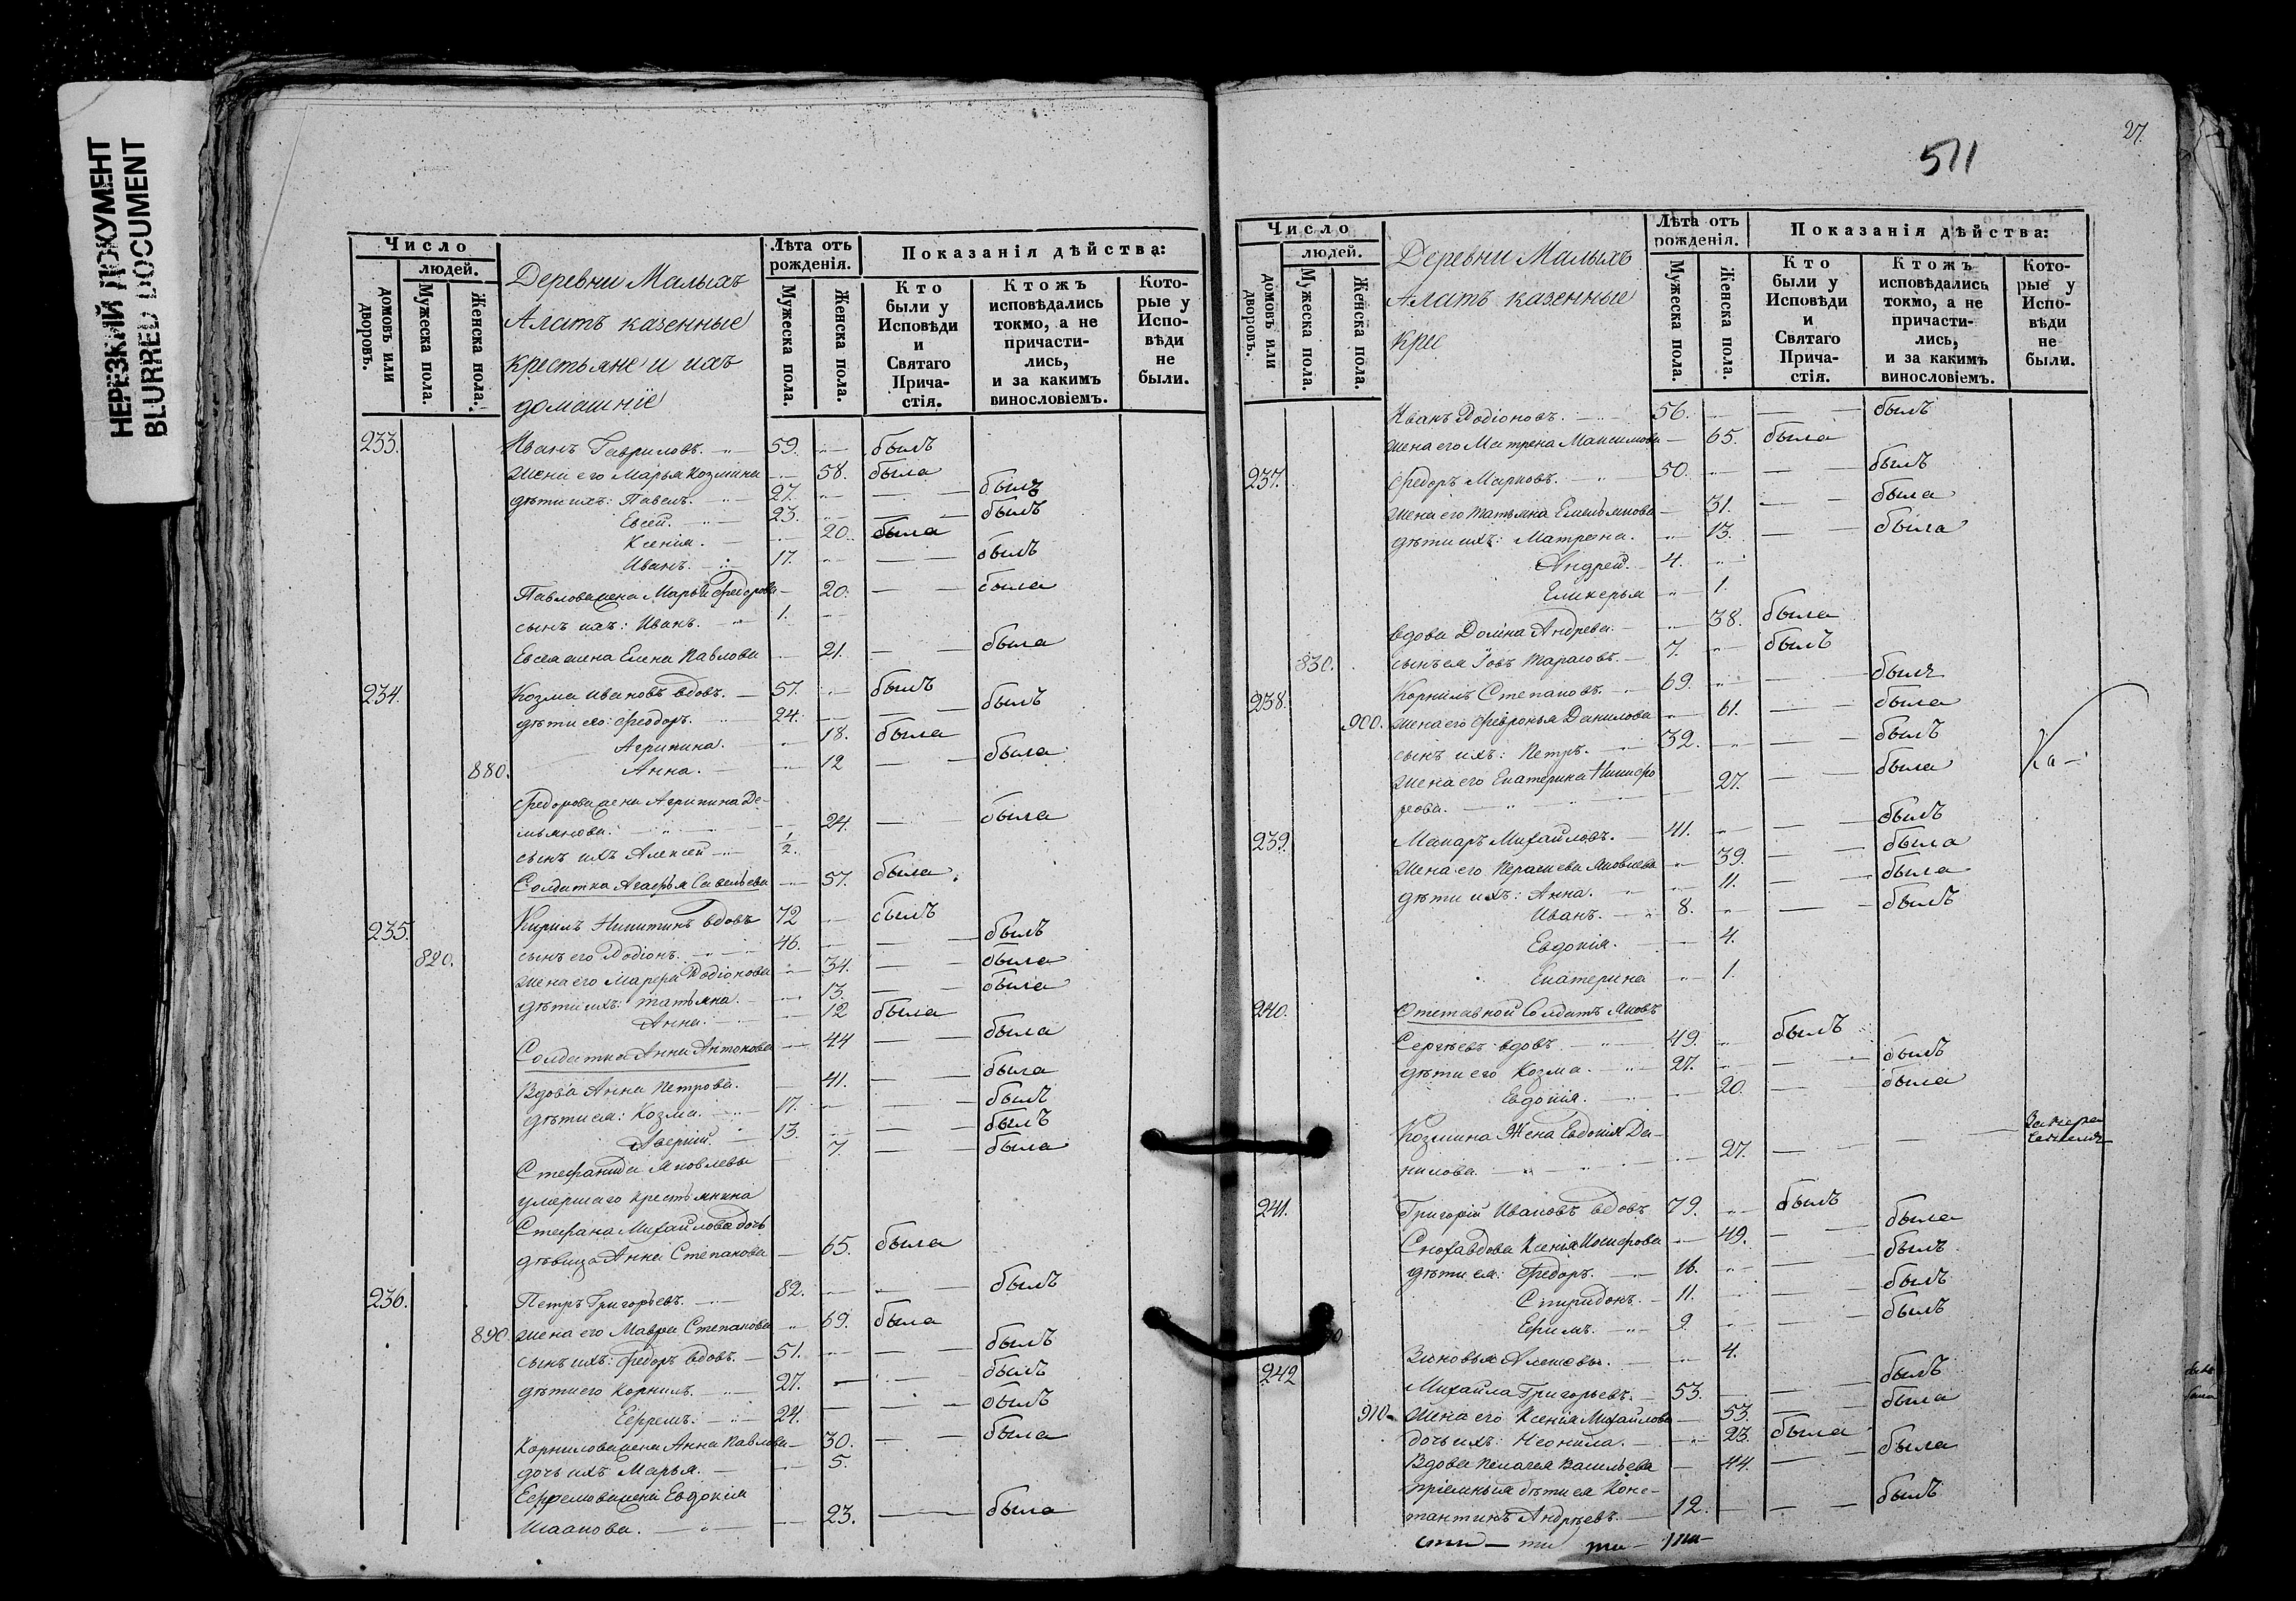 НЕРЕЗКИЙ ДОКУМЕНТ
BLURRED DOCUMENT
Число
людей.
домовъ или дворовъ.
Мужеска пола.
Женска пола.
Деревни Малыхъ
Алатъ казенные
крестьяне и ихъ
домашніе
Лѣта отъ рожденія.
Мужеска пола.
Женска пола.
Показанія дѣйства:
Кто были у Исповѣди и Святаго Прича-стія.
Ктожъ исповѣдались токмо, а не причасти-лись, и за какимъ винословіемъ.
Кото-рые у Испо-вѣди не были.
233. Иванъ Гавриловъ. 59. былъ
жена его Марья Козмина 58. была
дѣти ихъ: Павелъ. 27. былъ
Евсей. 23. былъ
Ксенія. 20. была
Иванъ. 17. былъ
Павлова жена Марья Федорова 20. была
сынъ ихъ: Иванъ. 1.
Евсея жена Елена Павлова 21. была
234. Козма Ивановъ вдовъ. 57. былъ
дѣти его: Феодоръ. 24. былъ
Агрипина. 18. была
880. Анна. 12 была
Федорова жена Агрипина Де-
мьянова. 24. была
сынъ ихъ Алексей 1/2.
Солдатка Агафья Савельева 57. была
235. Кирилъ Никитинъ вдовъ 72 былъ
820. сынъ его Родіонъ. 46. былъ
жена его Марфа Родіонова 34. была
дѣти ихъ: Татьяна. 13. была
Анна. 12 была
Солдатка Анна Антонова 44 была
Вдова Анна Петрова. 41. была
дѣти ея: Козма. 17. былъ
Аверкій. 13. былъ
Стефанида Яковлева 7. была
умершаго крестьянина
Стефана Михайлова дочь
дѣвица Анна Степанова 65. была
236. Петръ Григорьевъ. 82. былъ
890. жена его Мавра Степанова 69. была
сынъ ихъ: Федоръ вдовъ. 51. былъ
дѣти его Корнилъ. 27. былъ
Ефремъ. 24. былъ
Корнилова жена Анна Павлова 30. была
дочь ихъ Марья. 5.
Ефремова жена Евдокія
Исаакова. 23. была
27.
511
Число
людей.
домовъ или дворовъ.
Мужеска пола.
Женска пола.
Деревни Малыхъ
Алатъ казенные
крес
Лѣта отъ рожденія.
Мужеска пола.
Женска пола.
Показанія дѣйства:
Кто были у Исповѣди и Святаго Прича-стія.
Ктожъ исповѣдались токмо, а не причасти-лись, и за какимъ винословіемъ.
Кото-рые у Испо-вѣди не были.
Иванъ Родіоновъ. 56. былъ
жена его Матрена Максимова 65. была
237. Федоръ Марковъ. 50. былъ
жена его Татьяна Емельянова 31. была
дѣти ихъ: Матрена. 13. была
Андрей. 4.
Гликерья 1.
вдова Домна Андреева 38. была
830. сынъ ея Іовъ Тарасовъ. 7. былъ
238. Корнилъ Степановъ. 69. былъ
900. жена его Февронья Данилова 61. была
сынъ ихъ: Петръ. 32. былъ
жена его Екатерина Никифо
рова. 27. была
239. Макаръ Михайловъ. 41. былъ
жена его Парасковья Яковлева 39. была
дѣти ихъ: Анна. 11. была
Иванъ. 8. былъ
Евдокія. 4.
Екатерина 1.
240. Отставной Солдатъ Яковъ
Сергѣевъ вдовъ 49. былъ
дѣти его Козма. 27. былъ
Евдокія. 20. была
Козмина Жена Евдокія Да-
нилова 27.
241. Григорій Ивановъ вдовъ 79. былъ
Сноха вдова Ксенія Іосифова 49. была
дѣти ея: Федоръ. 16. былъ
Спиридонъ. 11. былъ
Ефимъ. 9 былъ
Зиновья Алексѣева. 4.
242 Михайла Григорьевъ. 53. былъ
910. жена его Ксенія Михайлова 53. была
дочь ихъ: Неонила. 23. была
Вдова Пелагея Васильева 44. была
Пріемныя дѣти ея Конс-
тантинъ Андрѣевъ. 12. былъ